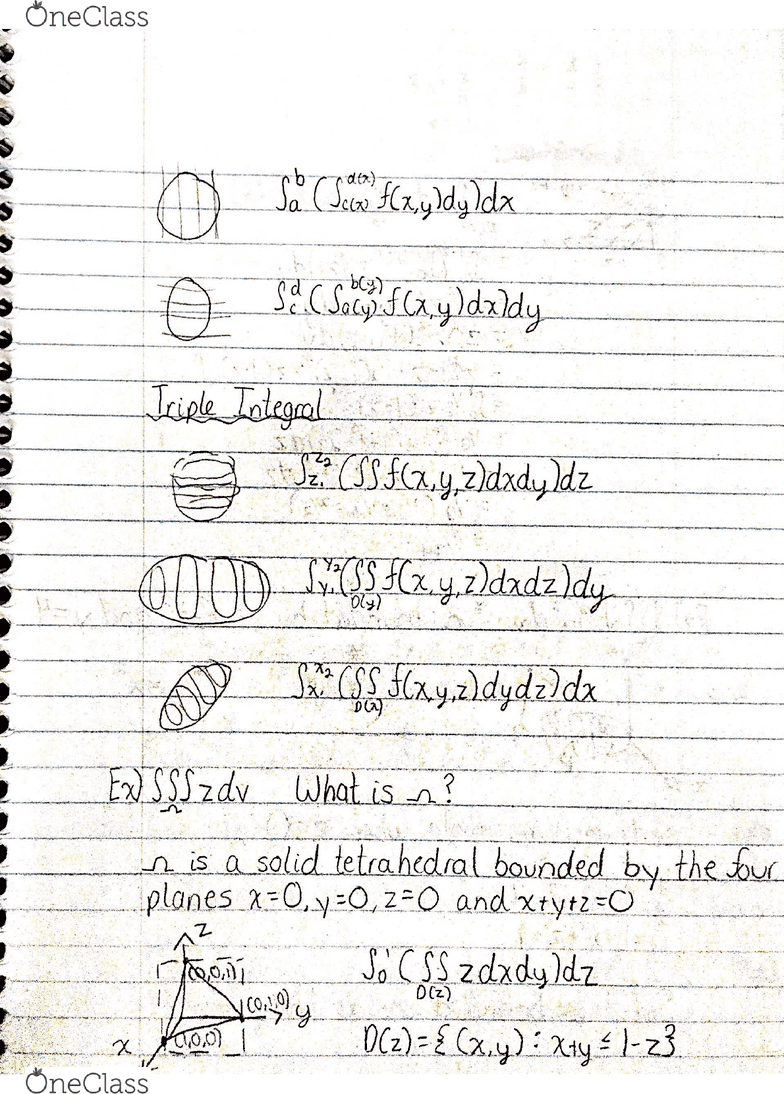 OneClass
∫_a^b (∫_{c(x)}^{d(x)} f(x,y)dy)dx
∫_c^d (∫_{a(y)}^{b(y)} f(x,y)dx)dy
Triple Integral
∫_{z₁}^{z₂} (∫∫ f(x,y,z)dxdy)dz
∫_{y₁}^{y₂} (∫∫_{D(y)} f(x,y,z)dxdz)dy
∫_{x₁}^{x₂} (∫∫_{D(x)} f(x,y,z)dydz)dx
Ex) ∫∫∫_Ω z dv What is Ω?
Ω is a solid tetrahedral bounded by the four
planes x=0, y=0, z=0 and x+y+z=0
z
(0,0,1)
∫_0^1 (∫∫_{D(z)} z dxdy)dz
(0,1,0) y
x (1,0,0)
D(z)={(x,y): x+y ≤ 1-z}
OneClass